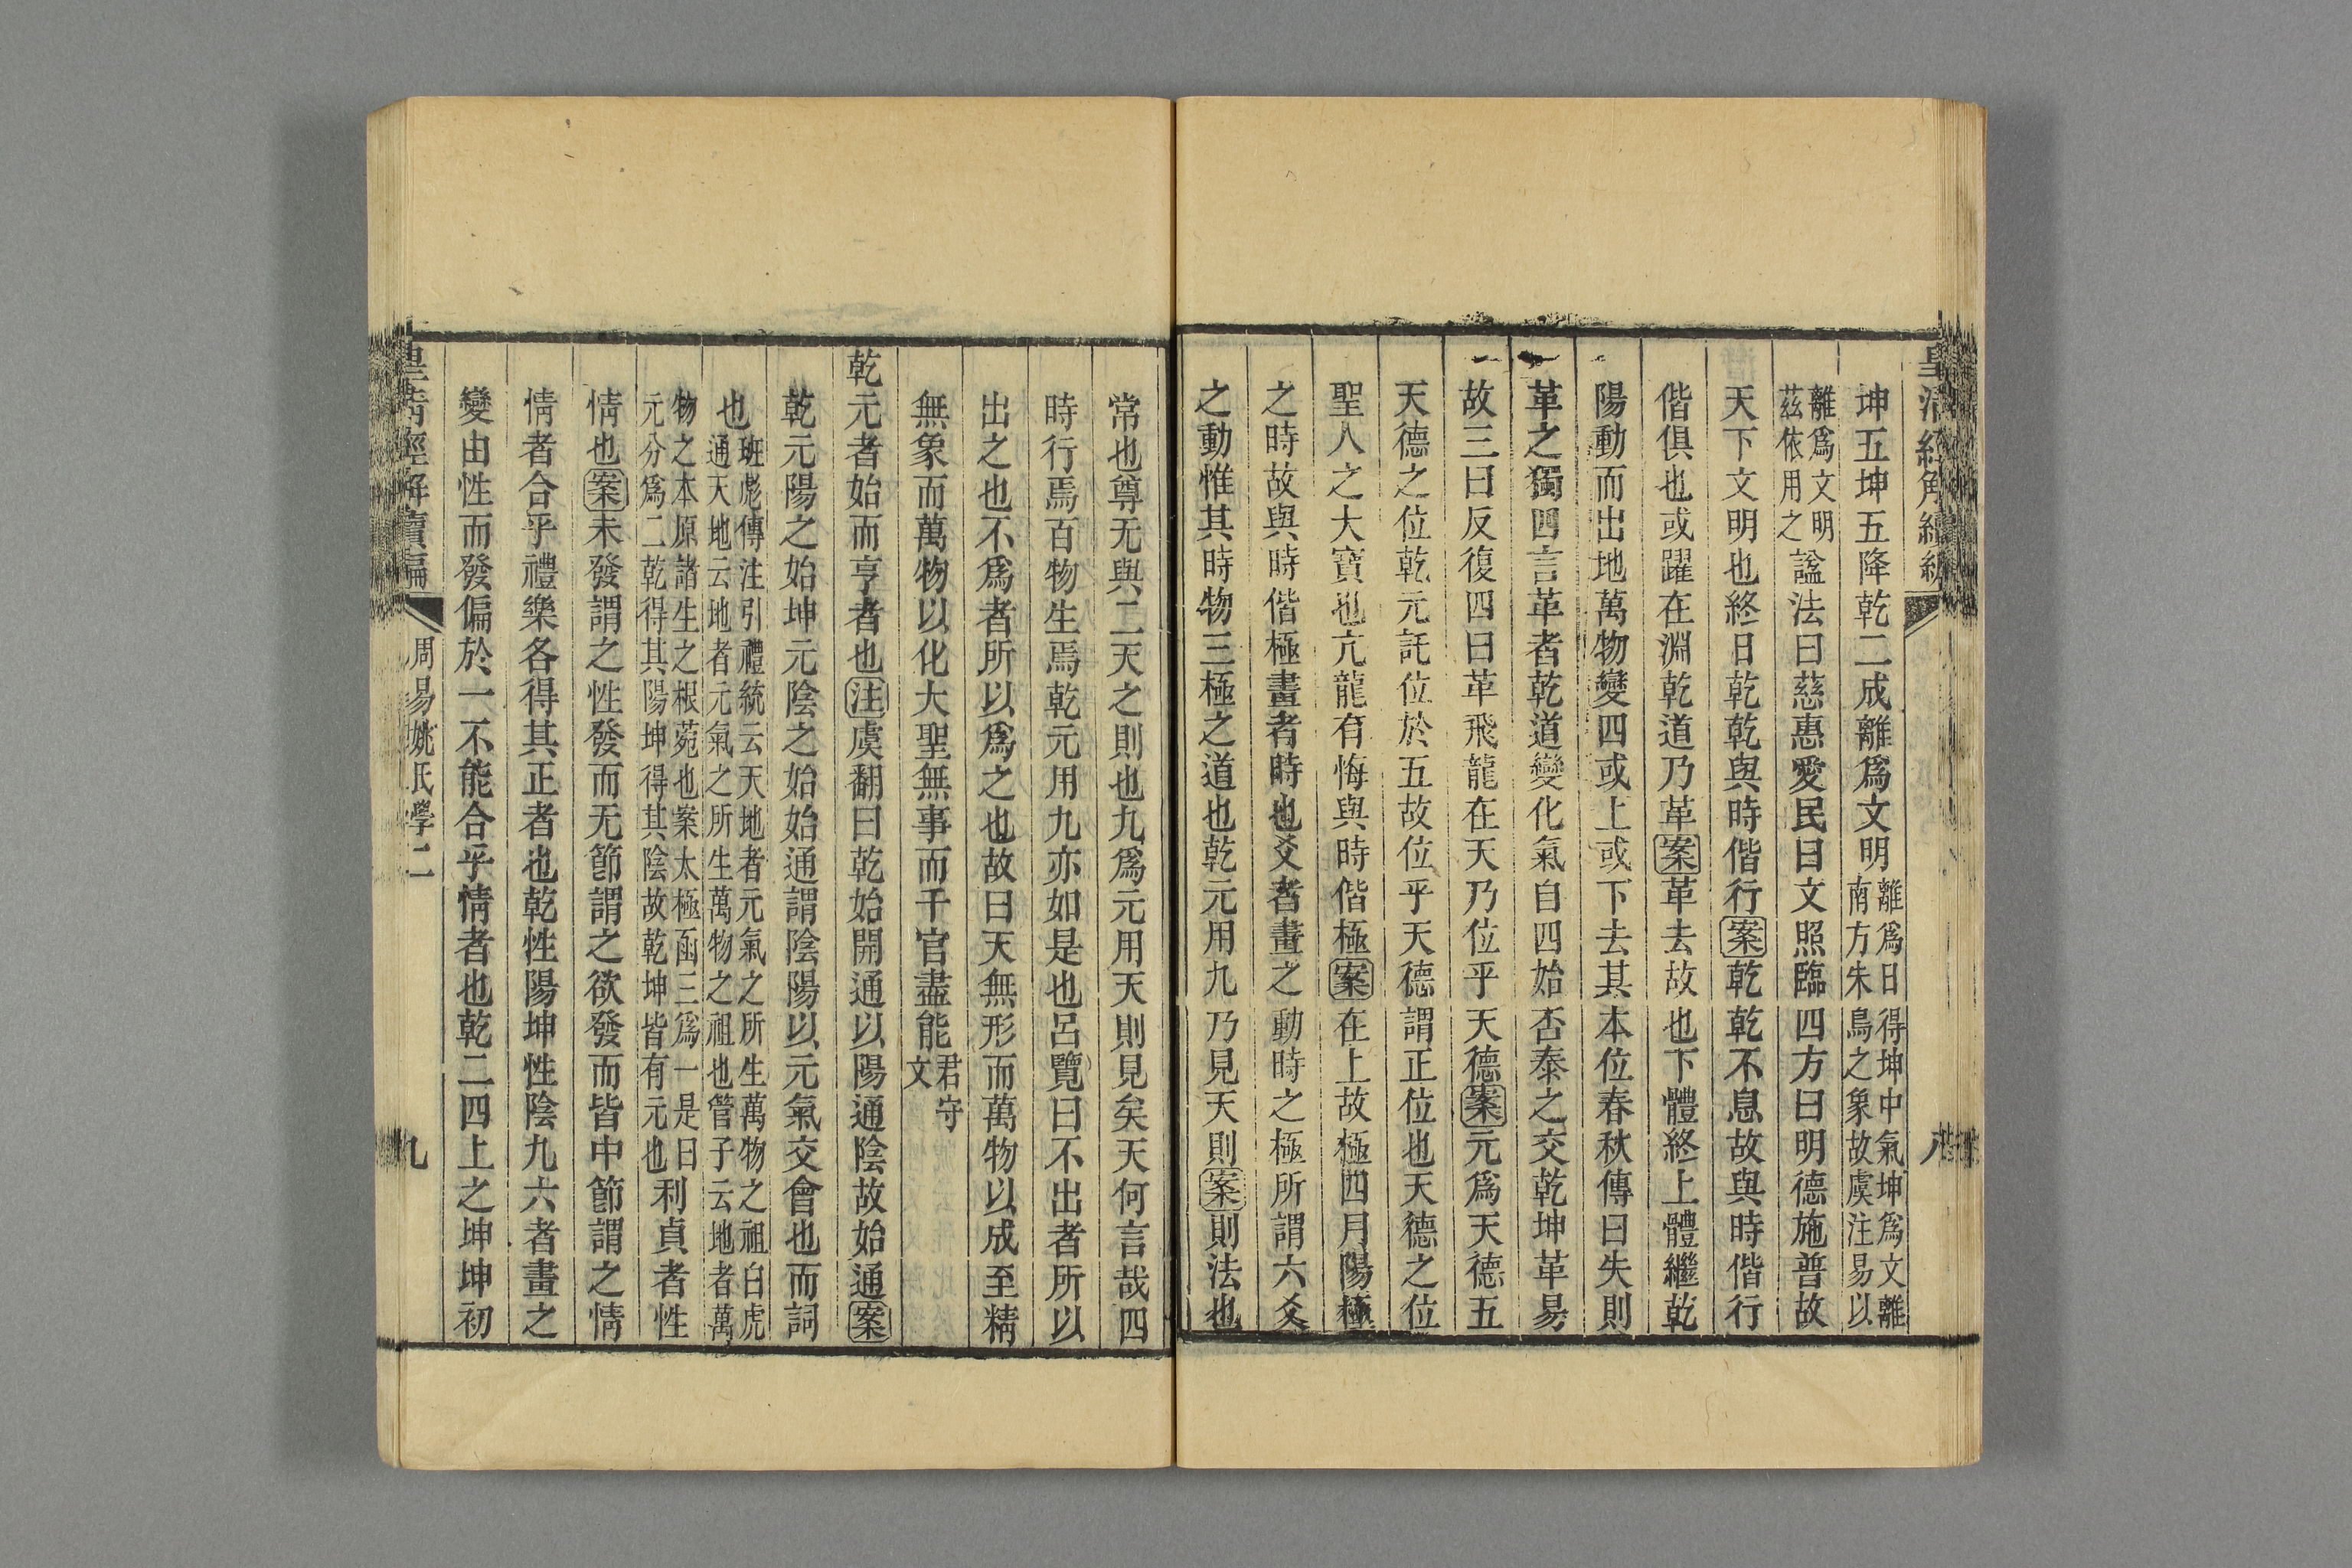 坤五坤五降乾二成離爲文明離爲日得坤中氣坤爲文離南方朱鳥之象故虞注易以
離爲文明茲依用之諡法曰慈惠愛民曰文照臨四方曰明德施普故
天下文明也終日乾乾與時偕行案乾乾不息故與時偕行
偕俱也或躍在淵乾道乃革案革去故也下體終上體繼乾
陽動而出地萬物變四或上或下去其本位春秋傳曰失則
革之獨四言革者乾道變化氣自四始否泰之交乾坤革易
故三曰反復四曰革飛龍在天乃位乎天德案元爲天德五
天德之位乾元託位於五故位乎天德謂正位也天德之位
聖人之大寶也亢龍有悔與時偕極案在上故極四月陽極
之時故與時偕極畫者時也爻者畫之動時之極所謂六爻
之動惟其時物三極之道也乾元用九乃見天則案則法也
常也尊无與二天之則也九爲元用天則見矣天何言哉四
時行焉百物生焉乾元用九亦如是也呂覽曰不出者所以
出之也不爲者所以爲之也故曰天無形而萬物以成至精
無象而萬物以化大聖無事而千官盡能君守文
乾元者始而亨者也注虞翻曰乾始開通以陽通陰故始通案
乾元陽之始坤元陰之始始通謂陰陽以元氣交會也而詞
也班彪傳注引禮統云天地者元氣之所生萬物之祖白虎通天地云地者元氣之所生萬物之祖也管子云地者萬
物之本原諸生之根菀也案太極函三爲一是曰元分爲二乾得其陽坤得其陰故乾坤皆有元也利貞者性
情也案未發謂之性發而无節謂之欲發而皆中節謂之情
情者合乎禮樂各得其正者也乾性陽坤性陰九六者畫之
變由性而發偏於一不能合乎情者也乾二四上之坤坤初
皇清經解續編
周易姚氏學二
九